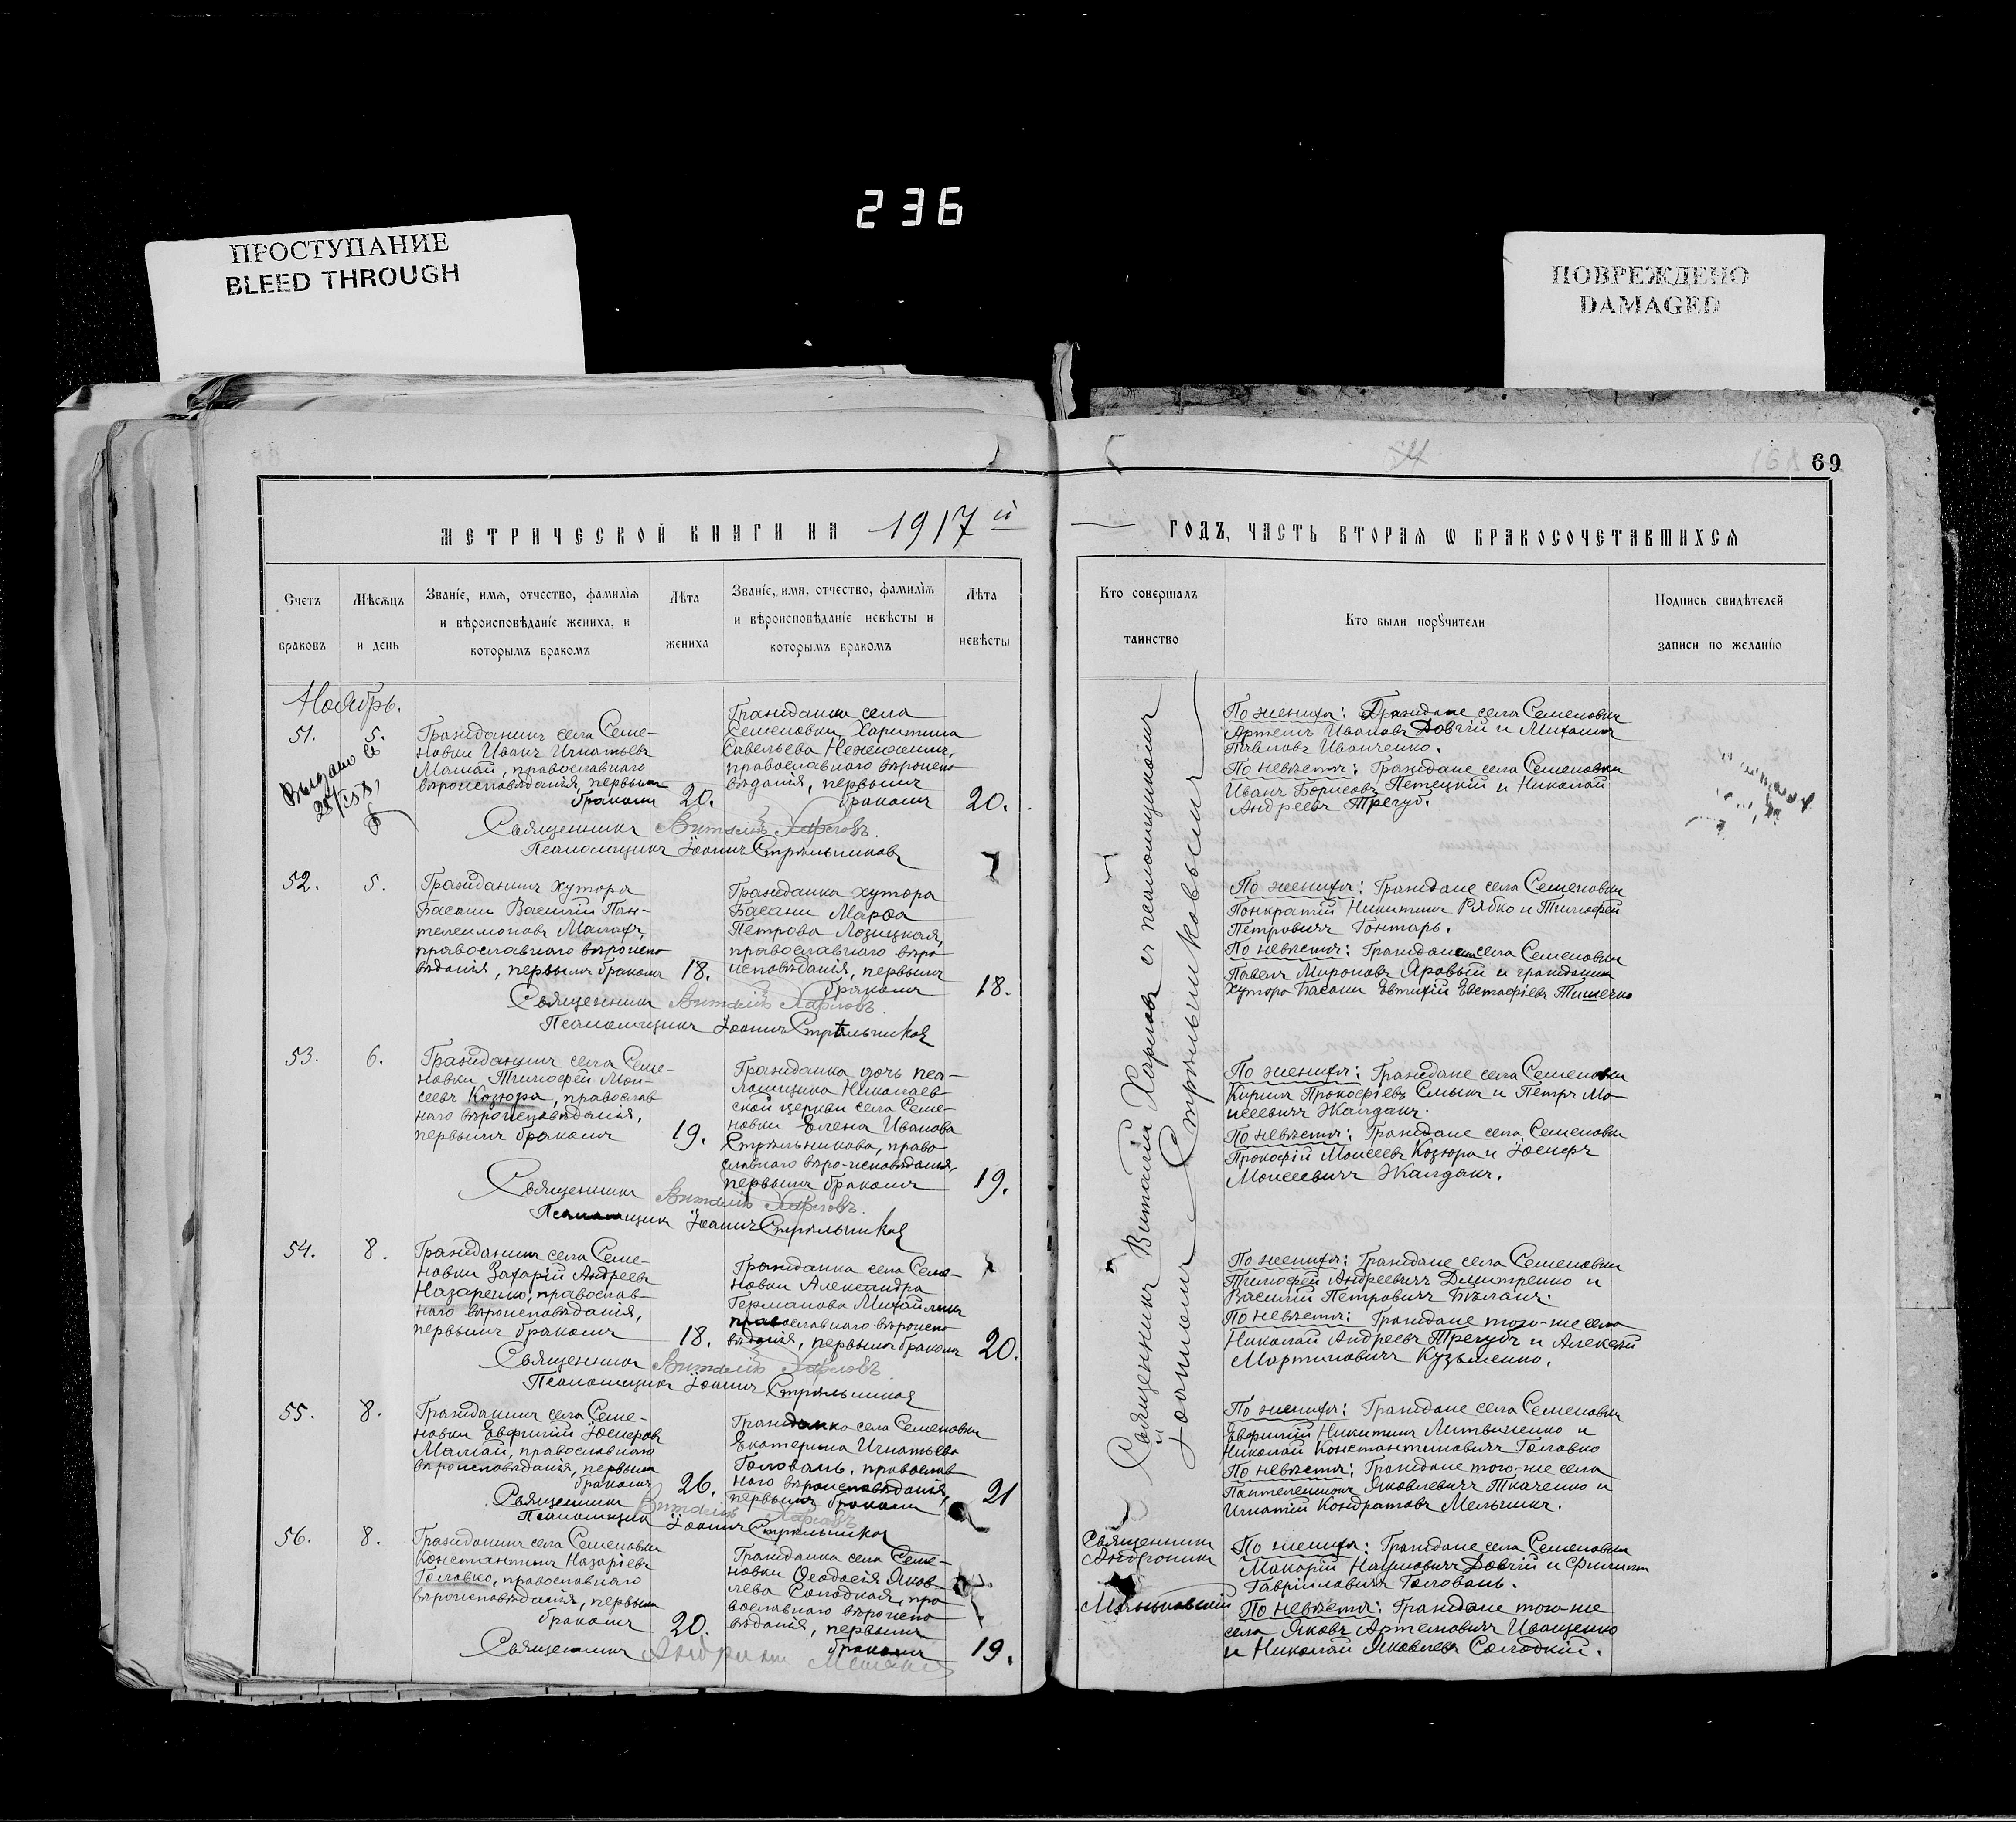 236
ПРОСТУПАНИЕ
BLEED THROUGH
ПОВРЕЖДЕНО
DAMAGED
69
МЕТРИЧЕСКОЙ КНИГИ НА 1917й
ГОДЪ, ЧАСТЬ ВТОРАЯ Ѡ БРАКОСОЧЕТАВШИХСЯ
Счетъ браковъ
Мѣсяцъ и день
Званіе, имя, отчество, фамилія
и вѣроисповѣданіе жениха, и
которымъ бракомъ
Лѣта жениха
Званіе, имя, отчество, фамилія
и вѣроисповѣданіе невѣсты и
которымъ бракомъ
Лѣта невѣсты
Кто совершалъ
таинство
Кто были порꙋчители
Подпись свидѣтелей
записи по желанію
Ноябрь.
51.
5.
Выдано
Гражданинъ села Семе-
новки Иванъ Игнатьевъ
Мамай, православнаго
вѣроисповѣданія, первымъ
бракомъ
20.
Гражданка села
Семеновки Харитина
Савельева
православнаго вѣроиспо
вѣданія, первымъ
бракомъ
20.
Священникъ Виталій Харловъ.
Псаломщикъ Іоаннъ Стрѣльниковъ
Священникъ Виталій Харловъ съ псаломщикомъ
Іоанномъ Стрѣльниковымъ
По женихѣ: Граждане села Семеновки
Артемъ Ивановъ Довгій и Михаилъ
Павловъ Иванченко.
По невѣстѣ: Граждане села Семеновки
Иванъ Борисовъ Петецкій и Николай
Андреевъ Трегуб.
52.
5.
Гражданинъ хутора
Басани Василій Пан-
телеимоновъ
православнаго вѣроиспо
вѣданія, первымъ бракомъ
18.
Гражданка хутора
Басани Марѳа
Петрова Лозицкая,
православнаго вѣро
исповѣданія, первымъ
бракомъ
18.
Священникъ Виталій Харловъ.
Псаломщикъ Іоаннъ Стрѣльников
По женихѣ: Граждане села Семеновки
Понкратій Никитинъ Рябко и Тимофей
Петровичъ Гонтарь.
По невѣстѣ: Гражданинъ села Семеновки
Павелъ Мироновъ Яровый и гражданинъ
хутора Басани Евтихій Евстафіевъ Тишечко
53.
6.
Гражданинъ села Семе-
новки Тимофей Мои-
сеевъ Козюра, православ
наго вѣроисповѣданія,
первымъ бракомъ
19.
Гражданка дочь пса-
ломщика Николаев-
ской церкви села Семе-
новки Елена Иванова
Стрѣльникова, право-
славнаго вѣро-исповѣданія,
первымъ бракомъ
19.
Священникъ Виталій Харловъ.
Псаломщикъ Іоаннъ Стрѣльников
По женихѣ: Граждане села Семеновки
Кирилъ Прокофіевъ Смыкъ и Петръ Мо-
исеевичъ Жалдакъ.
По невѣстѣ: Граждане села Семеновки
Прокофій Моисеевъ Козюра и Іосифъ
Моисеевичъ Жалдакъ.
54.
8.
Гражданинъ села Семе-
новки Захарій Андреевъ
Назаренко, православ-
наго вѣроисповѣданія,
первымъ бракомъ
18.
Гражданка села Семе-
новки Александра
Германова
православнаго вѣроиспо
вѣданія, первымъ бракомъ
20.
Священникъ Виталій Харловъ
Псаломщикъ Іоаннъ Стрѣльников
По женихѣ: Граждане села Семеновки
Тимофей Андреевичъ Дмитренко и
Василій Петровичъ Бѣланъ.
По невѣстѣ: Граждане того-же села
Николай Андреевъ Трегубъ и Алексѣй
Мартиновичъ Кузьменко.
55.
8.
Гражданинъ села Семе-
новки Евфимій Іосифовъ
Мамай, православнаго
вѣроисповѣданія, первымъ
бракомъ
26.
Гражданка села Семеновки
Екатерина Игнатьева
Головань, православ
наго вѣроисповѣданія,
первымъ бракомъ
21
Священникъ Виталій Харловъ
Псаломщикъ Іоаннъ Стрѣльников
По женихѣ: Граждане села Семеновки
Евфимій Никитинъ Литвиненко и
Николай Константиновичъ Головко
По невѣстѣ: Граждане того-же села
Пантелеимонъ Яковлевичъ Ткаченко и
Игнатій Кондратовъ Мельникъ.
56.
8.
Гражданинъ села Семеновки
Константинъ Назаріевъ
Головко, православнаго
вѣроисповѣданія, первымъ
бракомъ
20.
Гражданка села Семе-
новки Ѳеодосія Яков-
лева Солодкая, пра
вославнаго вѣроиспо
вѣданія, первымъ
бракомъ
19.
Священникъ
Священникъ
Андроникъ
По женихѣ: Граждане села Семеновки
Макарій Наумовичъ Довгій и Филиппъ
Гавріиловичъ Головань.
По невѣстѣ: Граждане того-же
села Яковъ Артемовичъ Иващенко
и Николай Яковлевъ Солодкій.